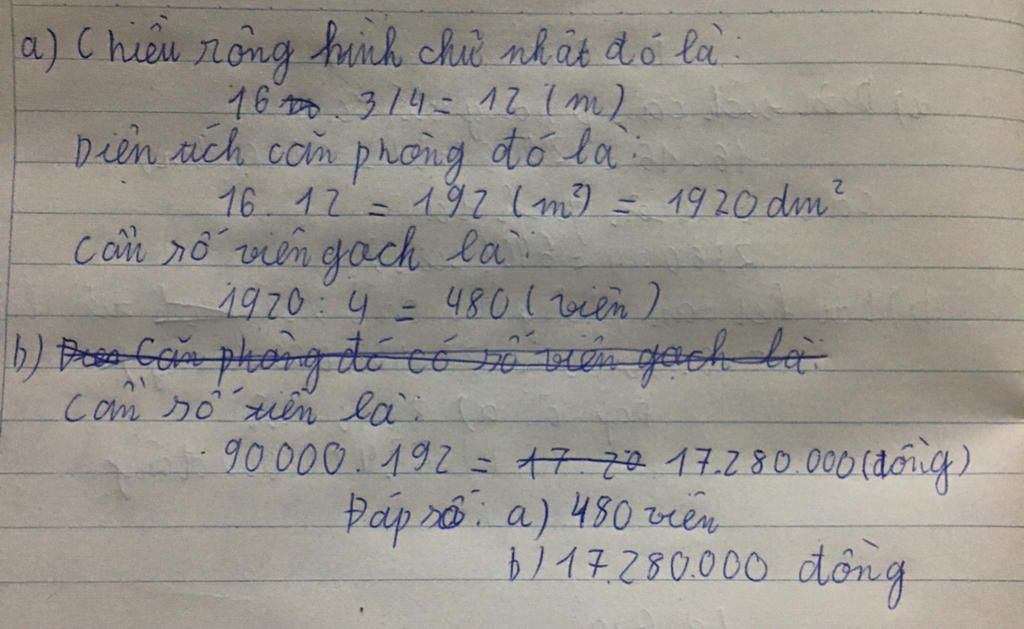 a) Chiều rông hình chữ nhât đó là:
16 . 3/4 = 12 (m)
Diên tích căn phòng đó là:
16 . 12 = 192 (m²) = 1920 dm²
Cần số viên gach là:
1920 : 4 = 480 (viên)
b) Căn phòng đó có số viên gach là:
Cần số tiền là:
90 000 . 192 = 17. 20 17.280.000 (đồng)
Đáp số: a) 480 viên
b) 17.280.000 đồng